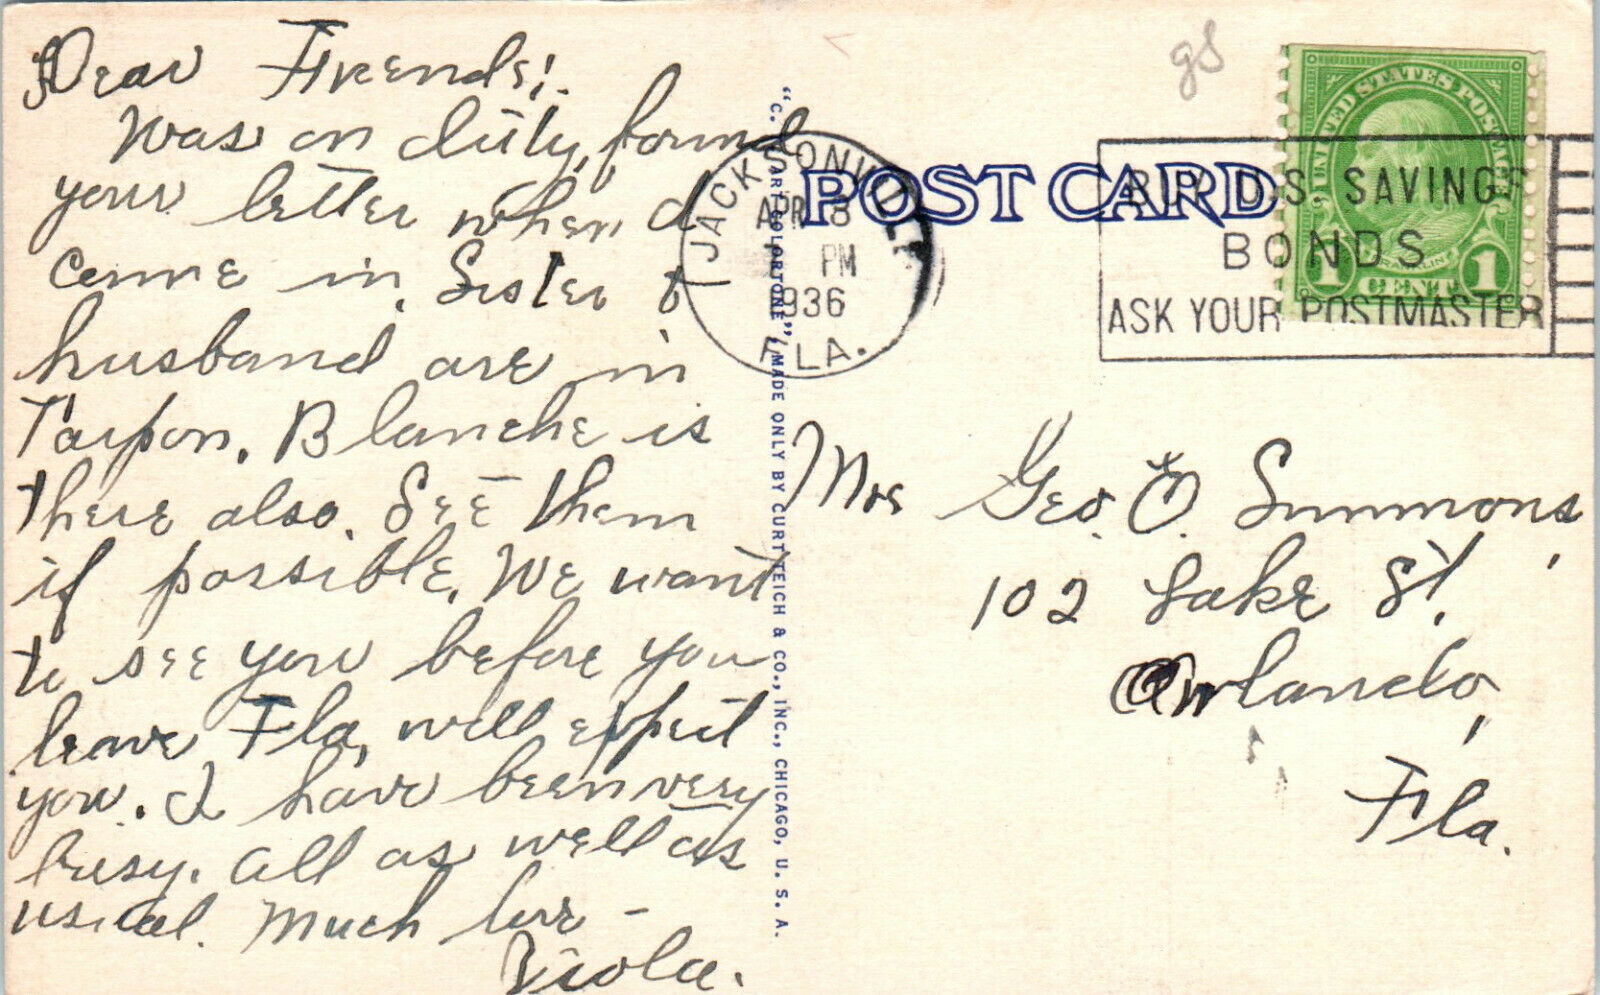 Dear Friends!
Was on duty, found
your letter when I
came in. Sister &
husband are in
Tarpon. Blanche is
there also. See them
if possible. We want
to see you before you
leave Fla, will expect
you. I have been very
busy. All as well as
usual. Much love -
Viola.
"C. T. ART-COLORTONE" MADE ONLY BY CURT TEICH & CO., INC., CHICAGO, U. S. A.
POST CARD
JACKSONVILLE
APR 8
PM
1936
FLA.
BUY U.S. SAVINGS
BONDS
ASK YOUR POSTMASTER
UNITED STATES POSTAGE
FRANKLIN
1 CENT 1
Mrs Geo. O. Summons,
102 Lake St.
Orlando,
Fla.